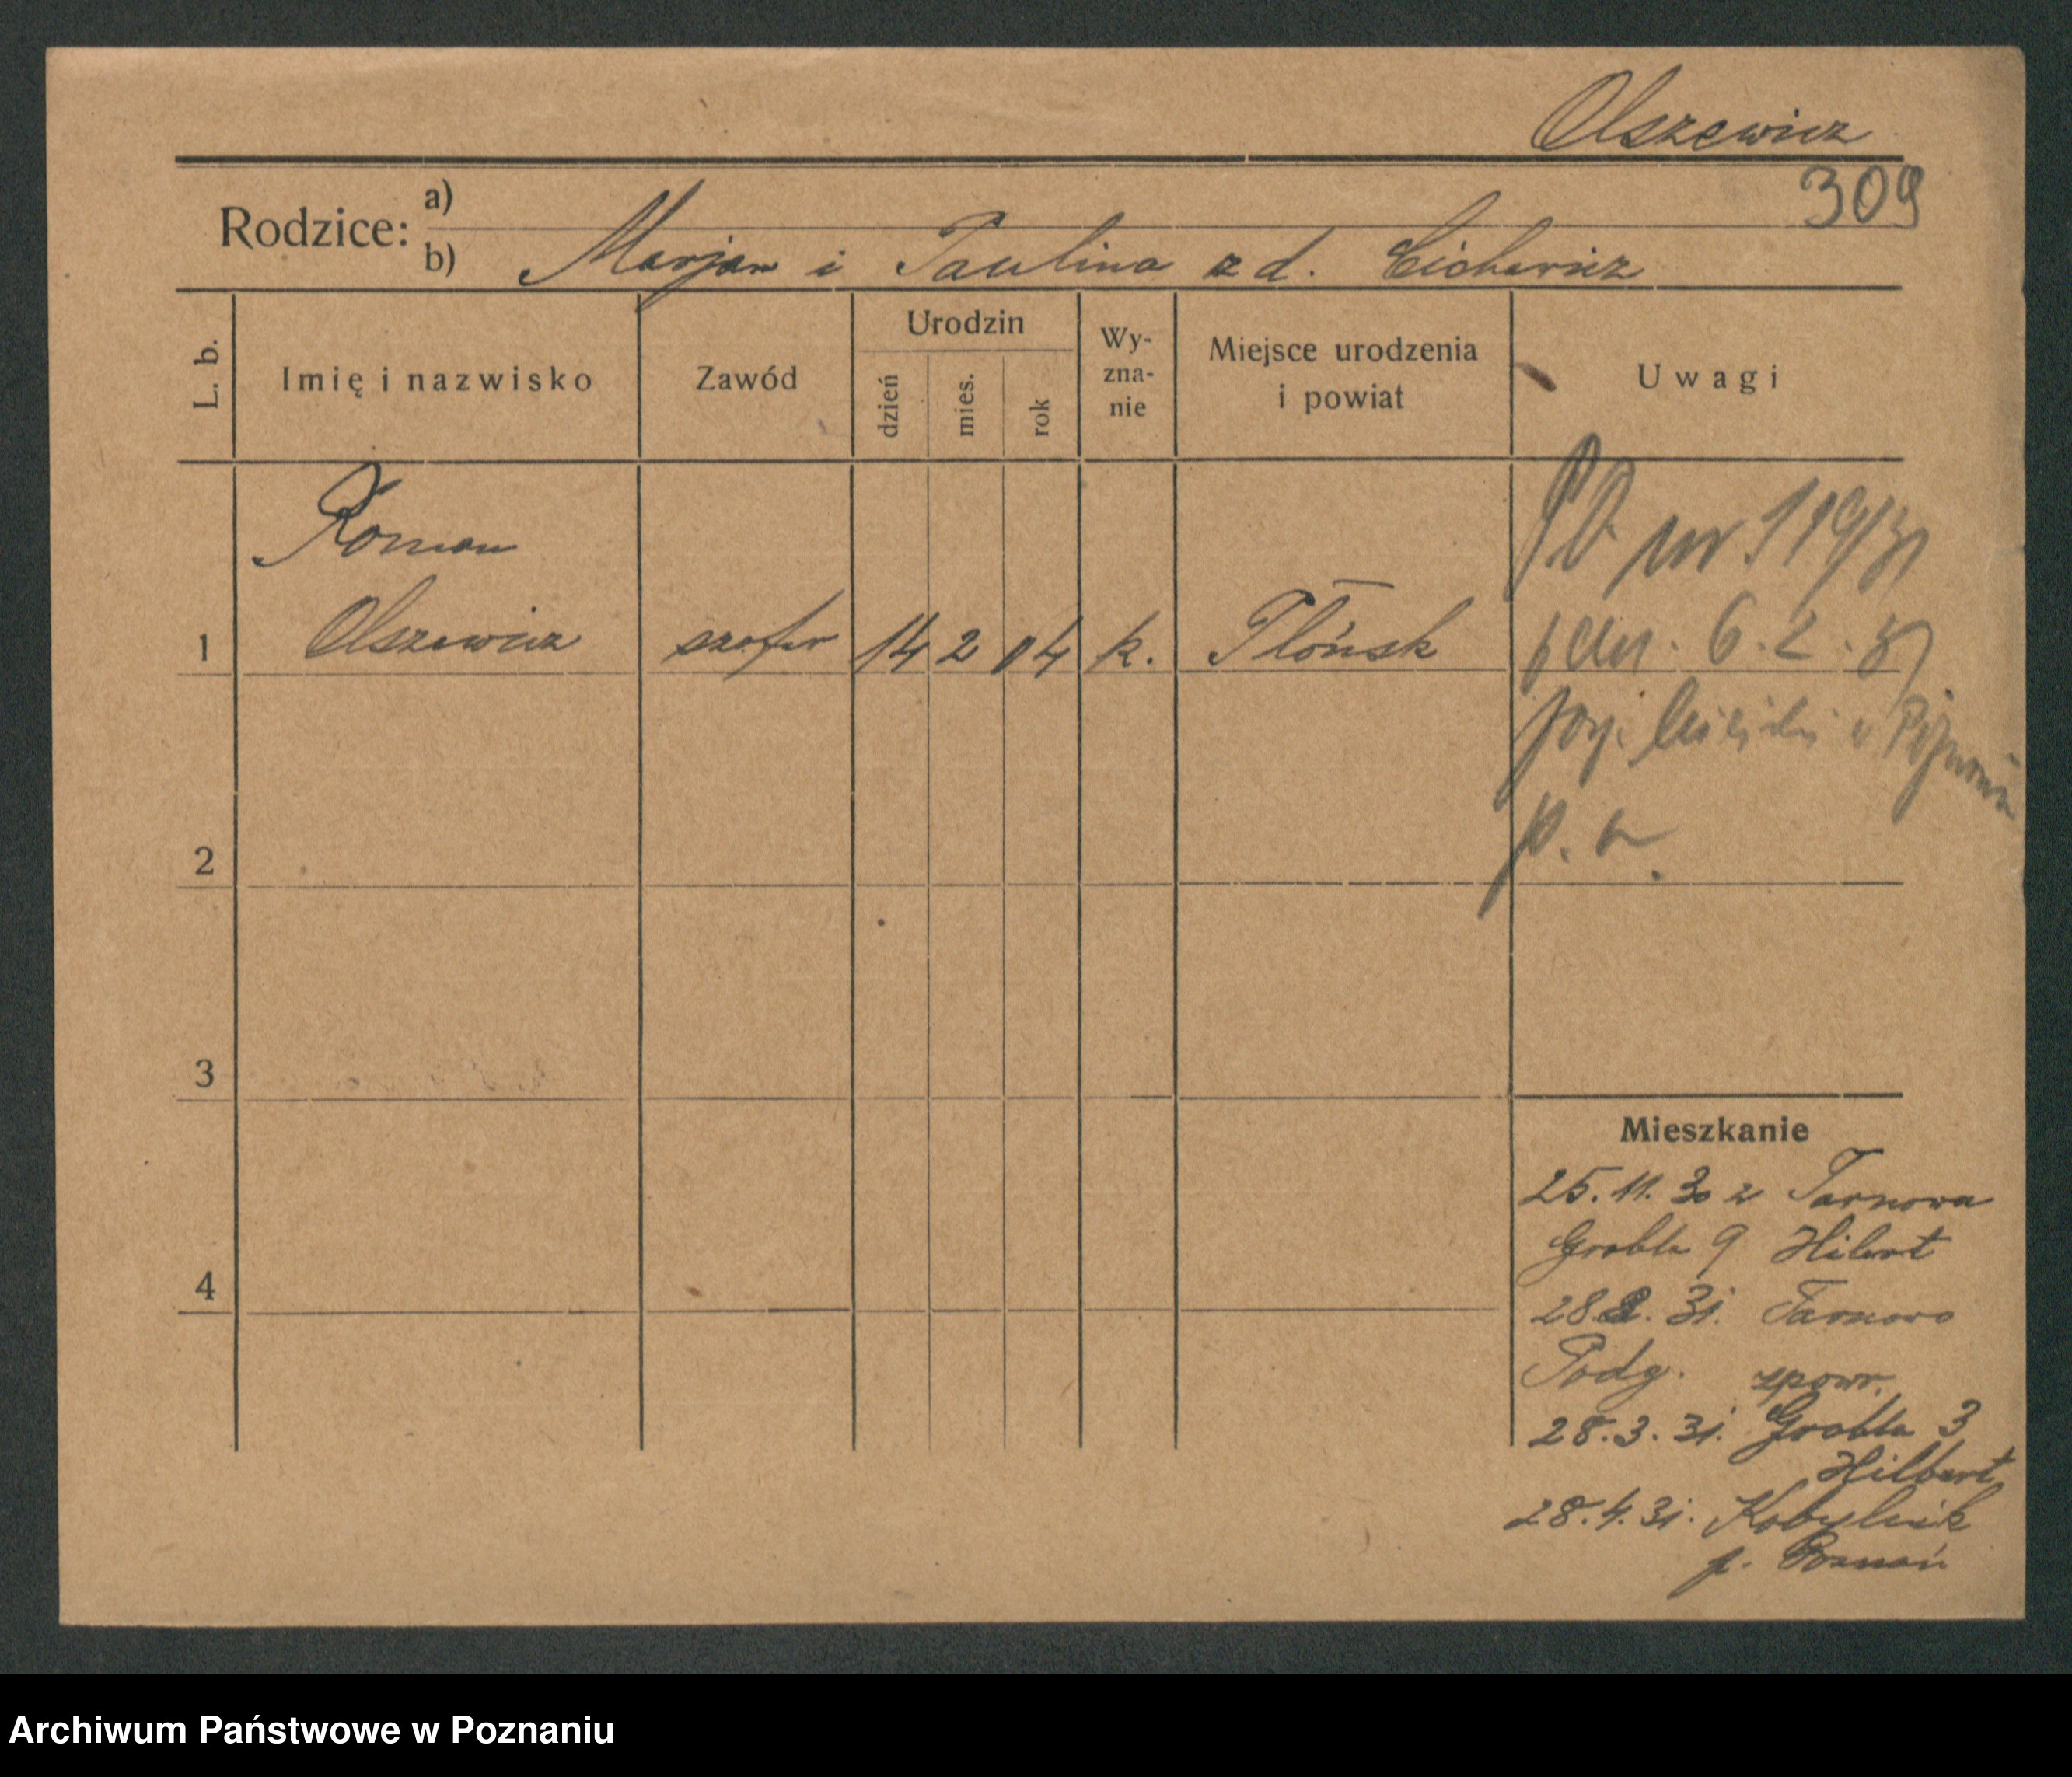 Olszewicz
309
Rodzice: a)
b) Marjan i Paulina z d. Cichewicz
L. b.
Imię i nazwisko
Zawód
Urodzin
dzień
mies.
rok
Wy-
zna-
nie
Miejsce urodzenia
i powiat
Uwagi
Roman
1 Olszewicz szofer 14 2 04 k. Płońsk
nr 119/31
6.2.31
2
3
4
Mieszkanie
25.11.30 z Tarnowa
Grobla 9 Hilbert
28 2. 31. Tarnowo
Podg. zpowr.
28.3.31. Grobla 3
Hilbert
28.4.31. Kobylnik
p. Poznań
Archiwum Państwowe w Poznaniu